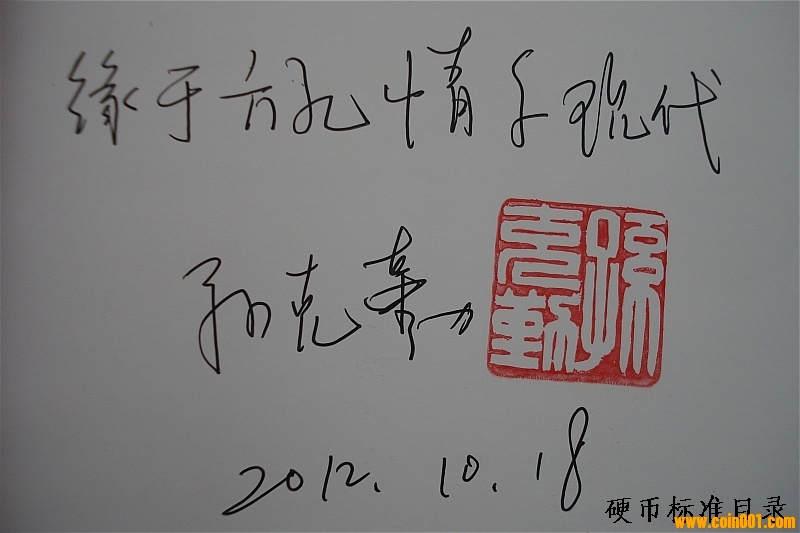 缘于方孔情于现代
孙克勤
孫克勤
2012.10.18
硬币标准目录
www.coin001.com